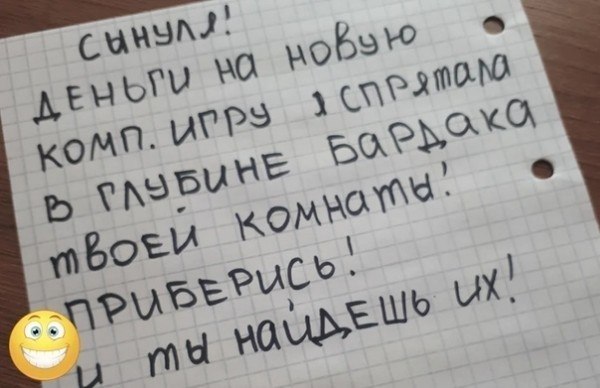 СЫНУЛЯ!
ДЕНЬГИ НА НОВУЮ
КОМП. ИГРУ Я СПРЯТАЛА
В ГЛУБИНЕ БАРДАКА
ТВОЕЙ КОМНАТЫ!
ПРИБЕРИСЬ!
И ТЫ НАЙДЕШЬ ИХ!